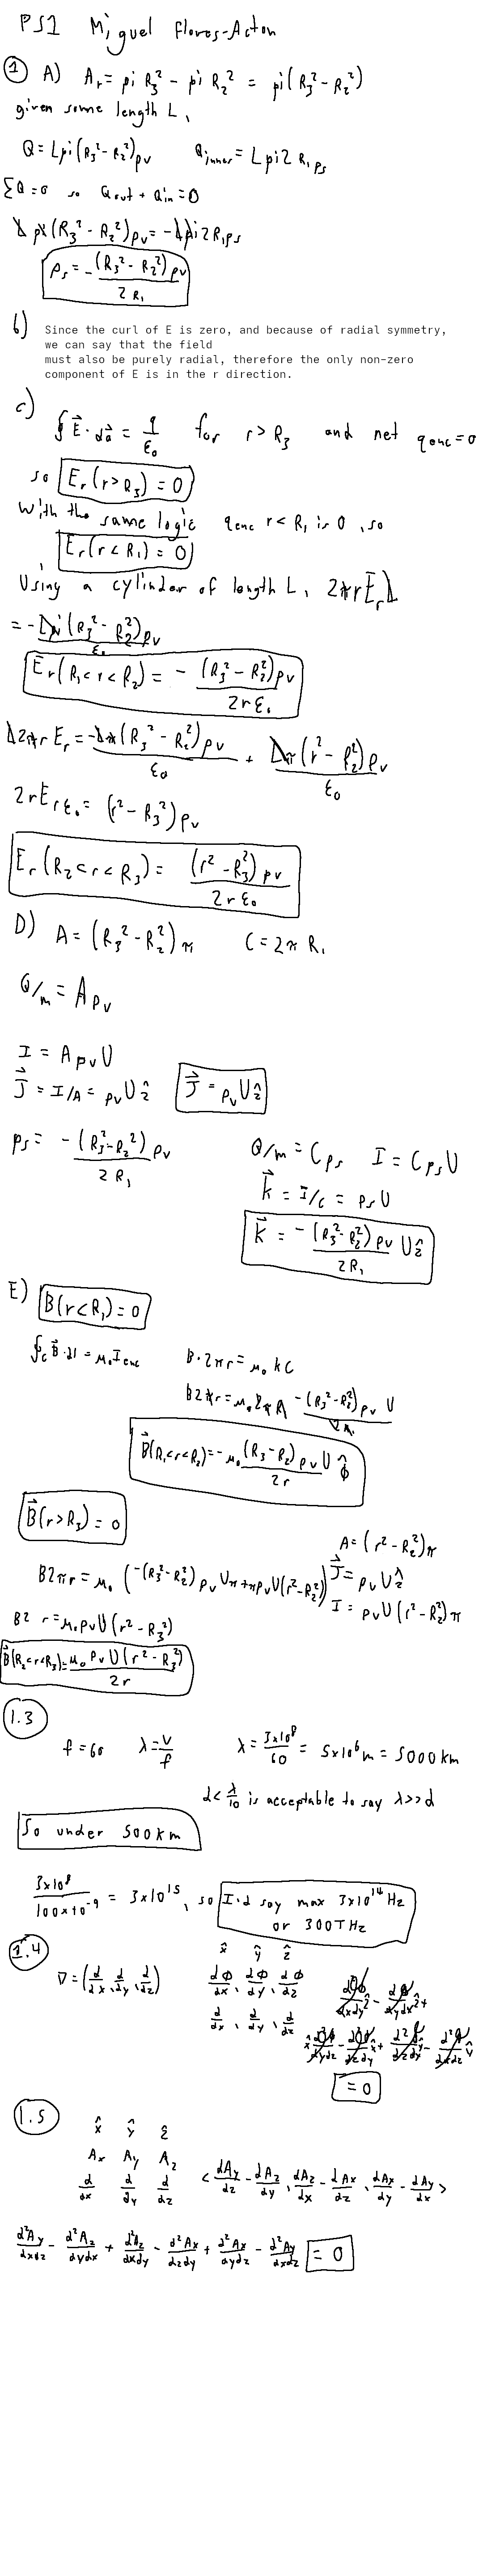 PS1 Miguel Flores-Acton
① A) Ar = pi R₃² - pi R₂² = pi(R₃² - R₂²)
given some length L,
Q = Lpi(R₃² - R₂²)ρv    Qinner = Lpi2R₁ρs
ΣQ=0 so Qout + Qin = 0
L pi(R₃² - R₂²)ρv = -Lpi2R₁ρs
ρs = -(R₃² - R₂²)ρv / 2R₁
b) Since the curl of E is zero, and because of radial symmetry,
we can say that the field
must also be purely radial, therefore the only non-zero
component of E is in the r direction.
c)
∮E⃗·da⃗ = q/ε₀ for r > R₃ and net qenc=0
so Er(r>R₃) = 0
With the same logic qenc r<R₁ is 0, so
Er(r<R₁) = 0
Using a cylinder of length L, 2πrErL
= -Lπ(R₃² - R₂²)ρv / ε₀
Er(R₁<r<R₂) = -(R₃² - R₂²)ρv / 2rε₀
L2πr Er = -Lπ(R₃² - R₂²)ρv / ε₀ + Lπ(r² - R₂²)ρv / ε₀
2rErε₀ = (r² - R₃²)ρv
Er(R₂<r<R₃) = (r² - R₃²)ρv / 2rε₀
D) A = (R₃² - R₂²)π    C = 2πR₁
Q/m = Aρv
I = AρvU
J⃗ = I/A = ρvUẑ    J⃗ = ρvUẑ
ρs = -(R₃² - R₂²)ρv / 2R₁    Q/m = Cρs    I = CρsU
k⃗ = I/c = ρsU
k⃗ = -(R₃² - R₂²)ρv / 2R₁ Uẑ
E) B(r<R₁) = 0
∮c B⃗·dl = μ₀Ienc    B·2πr = μ₀kC
B2πr = μ₀2πR₁ -(R₃² - R₂²)ρv U / 2R₁
B⃗(R₁<r<R₂) = -μ₀(R₃ - R₂)ρvU / 2r ϕ̂
B⃗(r>R₃) = 0
A = (r² - R₂²)π
J⃗ = ρvUẑ
I = ρvU(r² - R₂²)π
B2πr = μ₀(-(R₃² - R₂²)ρvUπ + πρvU(r² - R₂²))
B2 r = μ₀ρvU(r² - R₃²)
B⃗(R₂<r<R₃) = μ₀ρvU(r² - R₃²) / 2r
1.3
f = 60    λ = v/f    λ = 3x10⁸/60 = 5x10⁶m = 5000km
d < λ/10 is acceptable to say λ>>d
So under 500km
3x10⁸ / 100x10⁻⁹ = 3x10¹⁵, so I'd say max 3x10¹⁴Hz
or 300THz
1.4
x̂ ŷ ẑ
∇ = (d/dx, d/dy, d/dz)    dΦ/dx, dΦ/dy, dΦ/dz
d/dx, d/dy, d/dz
= 0
1.5
x̂ ŷ ẑ
Ax Ay Az
d/dx d/dy d/dz    <dAy/dz - dAz/dy, dAz/dx - dAx/dz, dAx/dy - dAy/dx>
d²Ay/dxdz - d²Az/dydx + d²Az/dxdy - d²Ax/dzdy + d²Ax/dydz - d²Ay/dxdz = 0